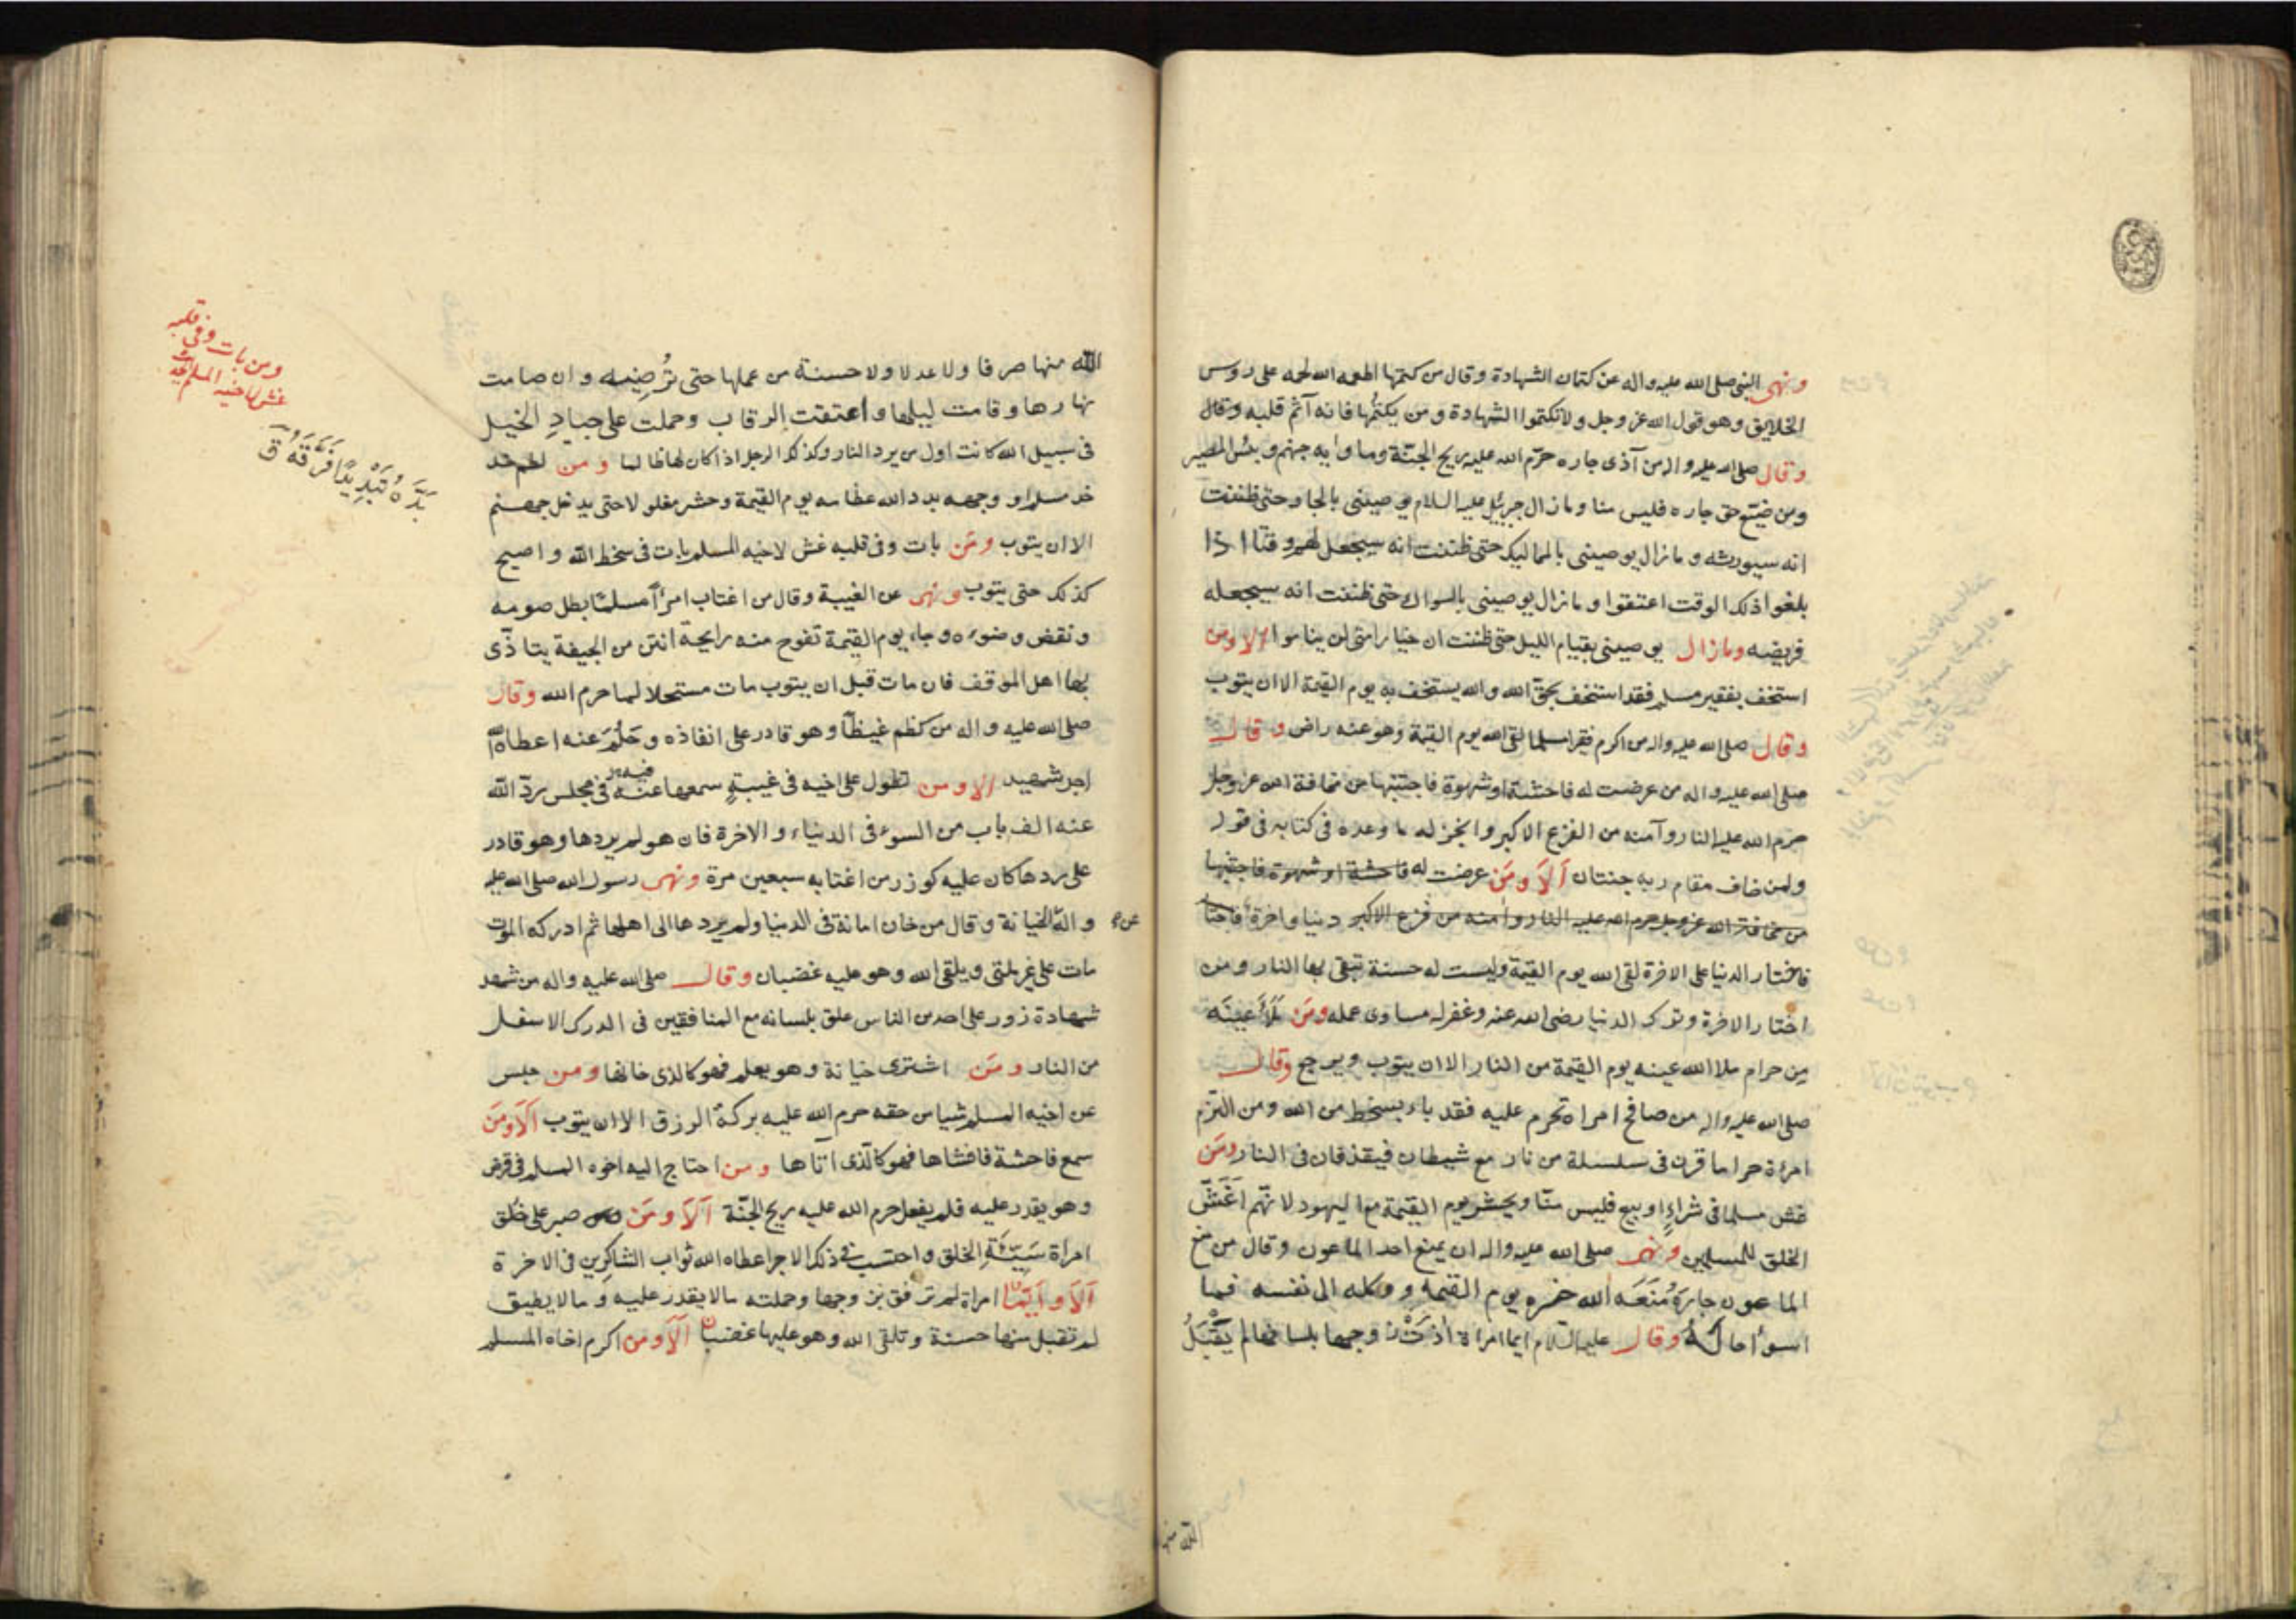 ونهى النبي صلى الله عليه واله عن كتمان الشهادة وقال من كتمها اطعمه الله لحمه على روس
الخلايق وهو قول الله عز وجل ولا تكتموا الشهادة ومن يكتمها فانه آثم قلبه وقال
وقال صلى الله عليه واله من آذى جاره حرّم الله عليه ريح الجنّة وماوايه جهنم وبئس المصير
ومن ضيّع حق جاره فليس منا وما زال جبرئيل عليه السلام يوصيني بالجار حتى ظننت
انه سيورثه وما زال يوصيني بالمماليك حتى ظننت انه سيجعل لهم وقتا اذا
بلغوا ذلك الوقت اعتقوا وما زال يوصيني بالسواك حتى ظننت انه سيجعله
فريضه وما زال يوصيني بقيام الليل حتى ظننت ان خيار امتي لن يناموا الا ومن
استخف بفقير مسلم فقد استخف بحقّ الله والله يستخف به يوم القيمة الا ان يتوب
وقال صلى الله عليه واله من اكرم فقيرا مسلما لقى الله يوم القيمة وهو عنه راض وقال
صلى الله عليه واله من عرضت له فاحشة او شهوة فاجتنبها من مخافة الله عز وجل
حرم الله عليه النار وآمنه من الفزع الاكبر وانجز له ما وعده في كتابه في قوله
ولمن خاف مقام ربه جنتان اَلاَ ومَن عرضت له فاحشة او شهوة فاجتنبها
من مخافة الله عز وجل حرم الله عليه النار وامنه من فزع الاكبر دنيا واخرة فاختا
فاختار الدنيا على الاخرة لقى الله يوم القيمة وليست له حسنة تبقى بها النار ومن
اختار الاخرة وترك الدنيا رضى الله عنه وغفر له مساوى عمله ومَن مَلَأَ عَينَه
مِن حرام ملا الله عينه يوم القيمة من النار الا ان يتوب ويرجع وقال
صلى الله عليه واله من صافح امراة تحرم عليه فقد باء بسخط من الله ومن التزم
امرءة حراما قرن في سلسلة من نار مع شيطان فيقذفان في النار ومَن
غش مسلما في شراءٍ او بيع فليس منّا ويحشر يوم القيمة مع اليهود لانّهم اَغَشّ
الخلق للمسلمين ونهى صلى الله عليه واله ان يمنع احد الماعون وقال من منع
الماعون جارَهُ مَنَعَه الله خيره يوم القيمه ووكله الى نفسه فما
اسوأ حالَهُ وقال عليه السّلام ايما امراة اذَتْ زوجها بلسانها لم يَقْبَلُ
الله منها
الله منها صرفا ولا عدلا ولا حسنة من عملها حتى تُرضيه وان صامت
نهارها وقامت ليلها واعتقت الرقاب وحملت على جيادِ الخيل
في سبيل الله كانت اول من يرد النار وكذلك الرجل اذا كان لها ظالما ومن لطم خد
خد مسلم او وجهه بدد الله عظامه يوم القيمة وحشر مغلولا حتى يدخل جهنم
الا ان يتوب ومَن بات وفي قلبه غش لاخيه المسلم بات في سخط الله واصبح
كذلك حتى يتوب ونهى عن الغيبة وقال من اغتاب امرأً مسلمًا بطل صومه
ونقض وضوءه وجاء يوم القيمة تفوح منه رايحة انتن من الجيفة يتاذّى
بها اهل الموقف فان مات قبل ان يتوب مات مستحلا لما حرم الله وقال
صلى الله عليه واله من كظم غيظاً وهو قادر على انفاذه وحَلُمَ عنه اعطاه الله
اجر شهيد الا ومن تطول على اخيه في غيبةٍ سمعها عنه فيه في مجلس ردّ الله
عنه الف باب من السوء في الدنيا والاخرة فان هو لم يردها وهو قادر
على ردها كان عليه كوزر من اغتابه سبعين مرة ونهى رسول الله صلى الله عليه
واله الخيانة وقال من خان امانة في الدنيا ولم يردها الى اهلها ثم ادركه الموت
عن
مات على غير ملتي ويلقى الله وهو عليه غضبان وقال صلى الله عليه واله من شهد
شهادة زور على احد من الناس علق بلسانه مع المنافقين في الدرك الاسفل
من النار ومَن اشترى خيانة وهو يعلم فهو كالذى خانها ومن حبس
عن اخيه المسلم شيا من حقه حرم الله عليه بركة الرزق الا ان يتوب اَلاَ ومَن
سمع فاحشة فافشاها فهو كالّذى اتاها ومن احتاج اليه اخوه المسلم في قرض
وهو يقدر عليه فلم يفعل حرم الله عليه ريح الجنّة اَلاَ ومَن صبر على خُلق
امراة سَيّئَةِ الخلق واحتسب في ذلك الاجر اعطاه الله ثواب الشاكرين في الاخرة
اَلاَ واَيّمَا امراة لم ترفق بزوجها وحملته ما لا يقدر عليه وما لا يطيق
لم تقبل منها حسنة وتلقى الله وهو عليها غضبان اَلاَ ومن اكرم اخاه المسلم
ومن بات وفي قلبه
غش لاخيه المسلم
بَدَّدَهُ تَبْدِيدًا فَرَّقَهُ ق